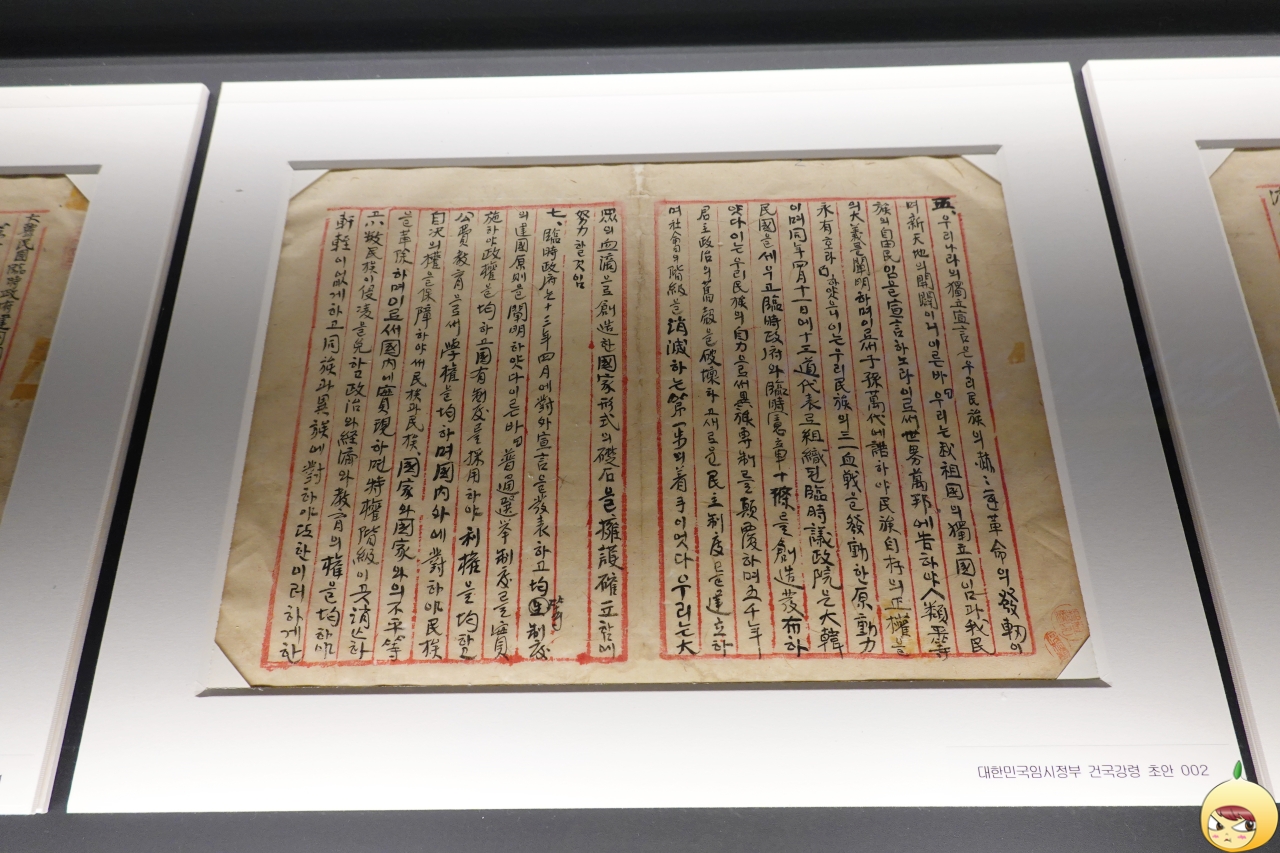 五、우리나라의獨立宣言은우리民族의赫〻한革命의發軔이
며新天地의開闢이니이른바우리는我祖國의獨立國임과我民
族의自由民임을宣言하노라이로써世界萬邦에告하야人類平等
의大義를闡明하며이로써子孫萬代에誥하야民族自存의正權을
永有호라하얏으니이는우리民族의三一血戰을發動한原動力
이며同年四月十一日에十三道代表로組織된臨時議政院은大韓
民國을세우고臨時政府와臨時憲章十條를創造發布하
얏다이는우리民族의自力으로써異族專制를顚覆하며五千年
君主政治의舊殼을破壞하고새로운民主制度를建立하
며社會의階級을消滅하는第一步의着手이엇다우리는大
衆의血滴으로創造한國家形式의礎石을擁護確立함에
努力할것임
七、臨時政府는十三年四月에對外宣言을發表하고均 制度
의建國原則을闡明하얏다이른바普通選挙制度를實
施하야政權을均하고國有制度를採用하야利權을均하고
公費教育으로써學權을均하며國內外에對하야民族
自決의權을保障하야써民族과民族 國家와國家와의不平等
을革除하며이로써國內에實現하면特權階級이곳消亡하
고少數民族이侵凌을免하고政治와經濟와教育의權을均하야
軒輊이없게하고同族과異族에對하야또한이러하게한
대한민국임시정부 건국강령 초안 002